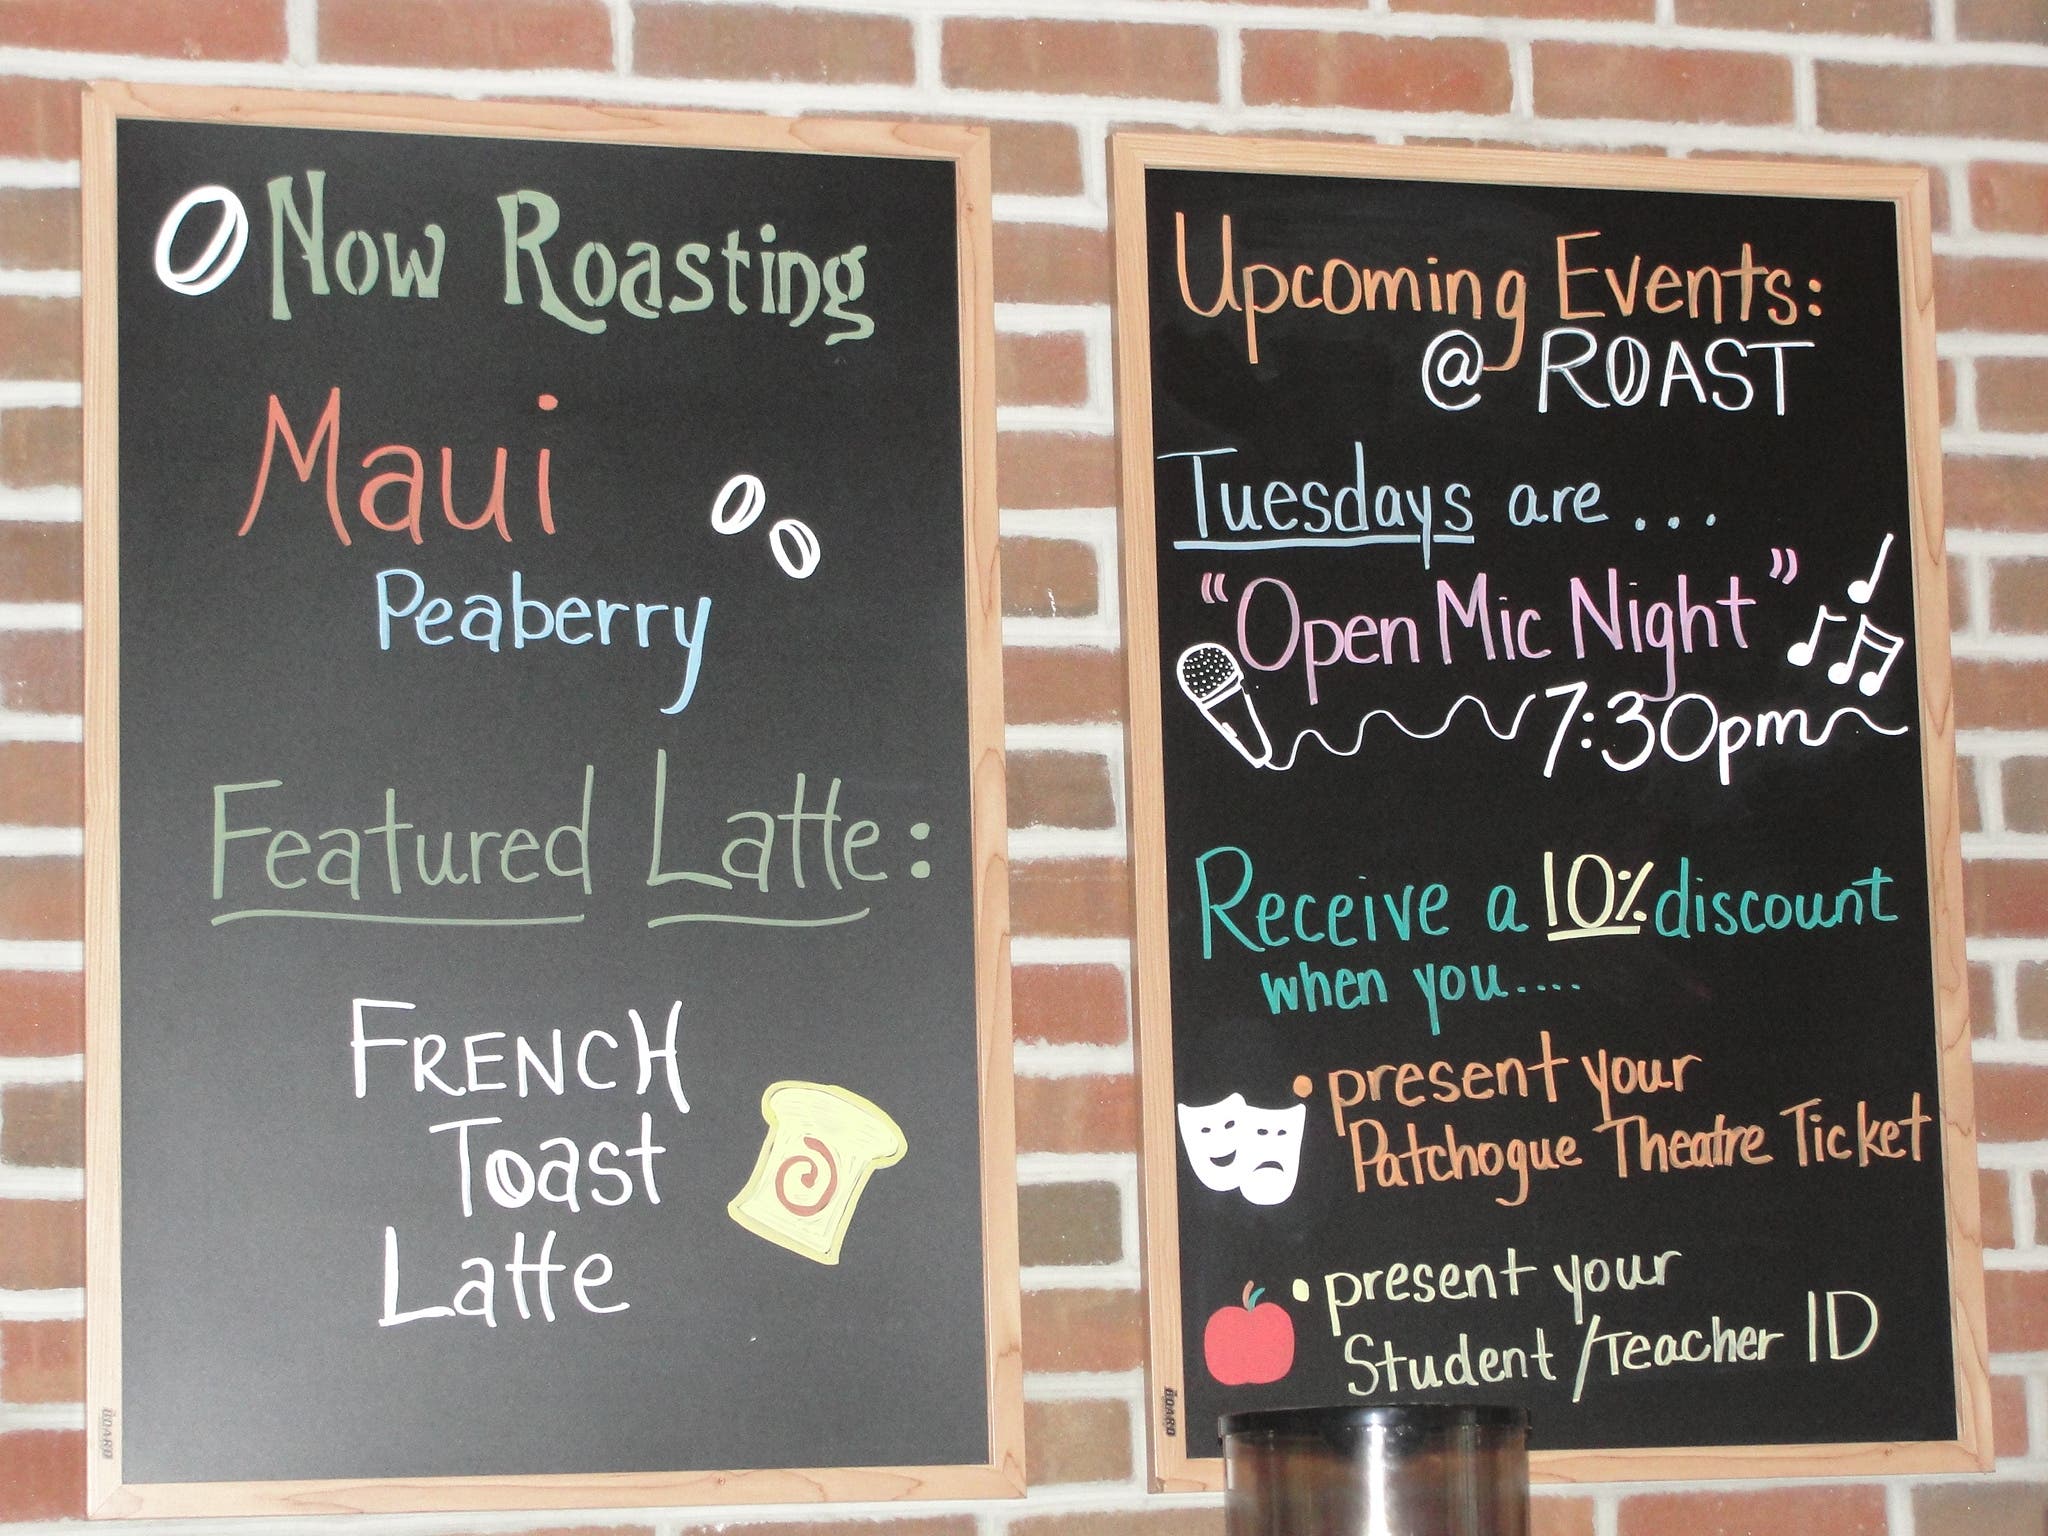 Now Roasting
Maui
Peaberry
Featured Latte:
FRENCH
Toast
Latte
Upcoming Events:
@ ROAST
Tuesdays are...
"Open Mic Night"
7:30pm
Receive a 10% discount
when you....
• present your
Patchogue Theatre Ticket
• present your
Student/Teacher ID